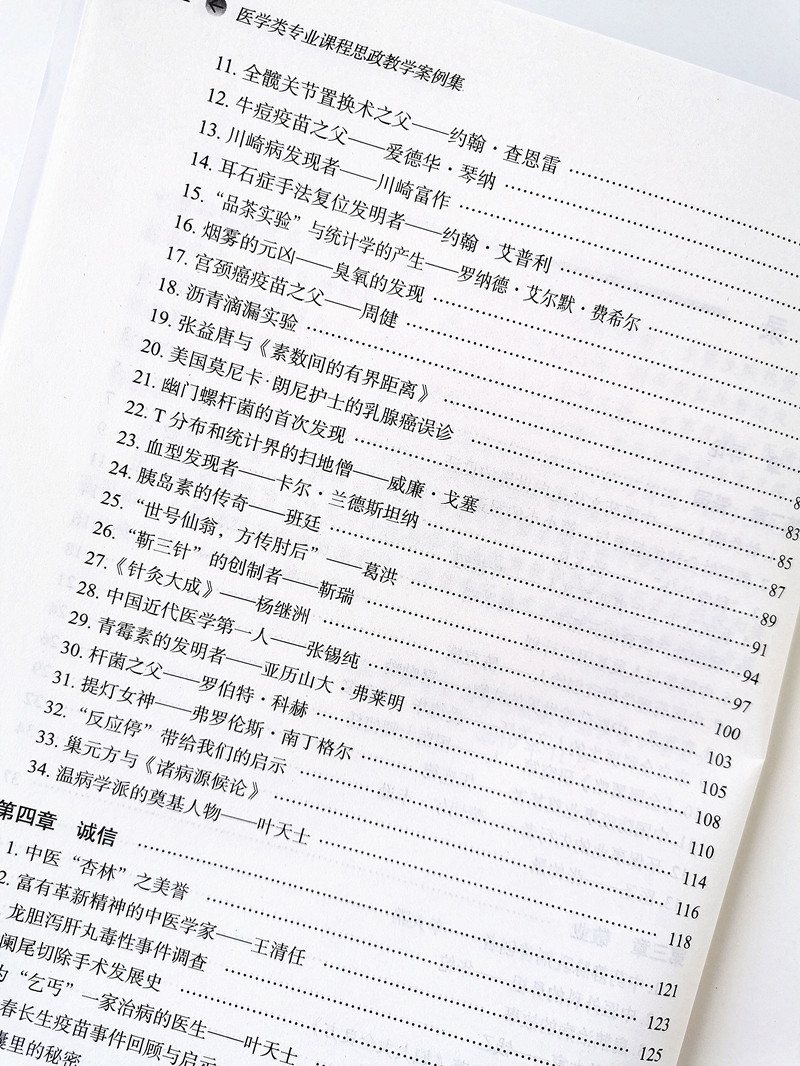 医学类专业课程思政教学案例集
11. 全髋关节置换术之父——约翰·查恩雷
12. 牛痘疫苗之父——爱德华·琴纳
13. 川崎病发现者——川崎富作
14. 耳石症手法复位发明者——约翰·艾普利
15. “品茶实验”与统计学的产生——罗纳德·艾尔默·费希尔
16. 烟雾的元凶——臭氧的发现
17. 宫颈癌疫苗之父——周健
18. 沥青滴漏实验
19. 张益唐与《素数间的有界距离》
20. 美国莫尼卡·朗尼护士的乳腺癌误诊 83
21. 幽门螺杆菌的首次发现 85
22. T 分布和统计界的扫地僧——威廉·戈塞 87
23. 血型发现者——卡尔·兰德斯坦纳 89
24. 胰岛素的传奇——班廷 91
25. “世号仙翁，方传肘后”——葛洪 94
26. “靳三针”的创制者——靳瑞 97
27.《针灸大成》——杨继洲 100
28. 中国近代医学第一人——张锡纯 103
29. 青霉素的发明者——亚历山大·弗莱明 105
30. 杆菌之父——罗伯特·科赫 108
31. 提灯女神——弗罗伦斯·南丁格尔 110
32. “反应停”带给我们的启示 114
33. 巢元方与《诸病源候论》 116
34. 温病学派的奠基人物——叶天士 118
第四章 诚信 121
1. 中医“杏林”之美誉 123
2. 富有革新精神的中医学家——王清任 125
龙胆泻肝丸毒性事件调查
阑尾切除手术发展史
为“乞丐”一家治病的医生——叶天士
春长生疫苗事件回顾与启示
囊里的秘密